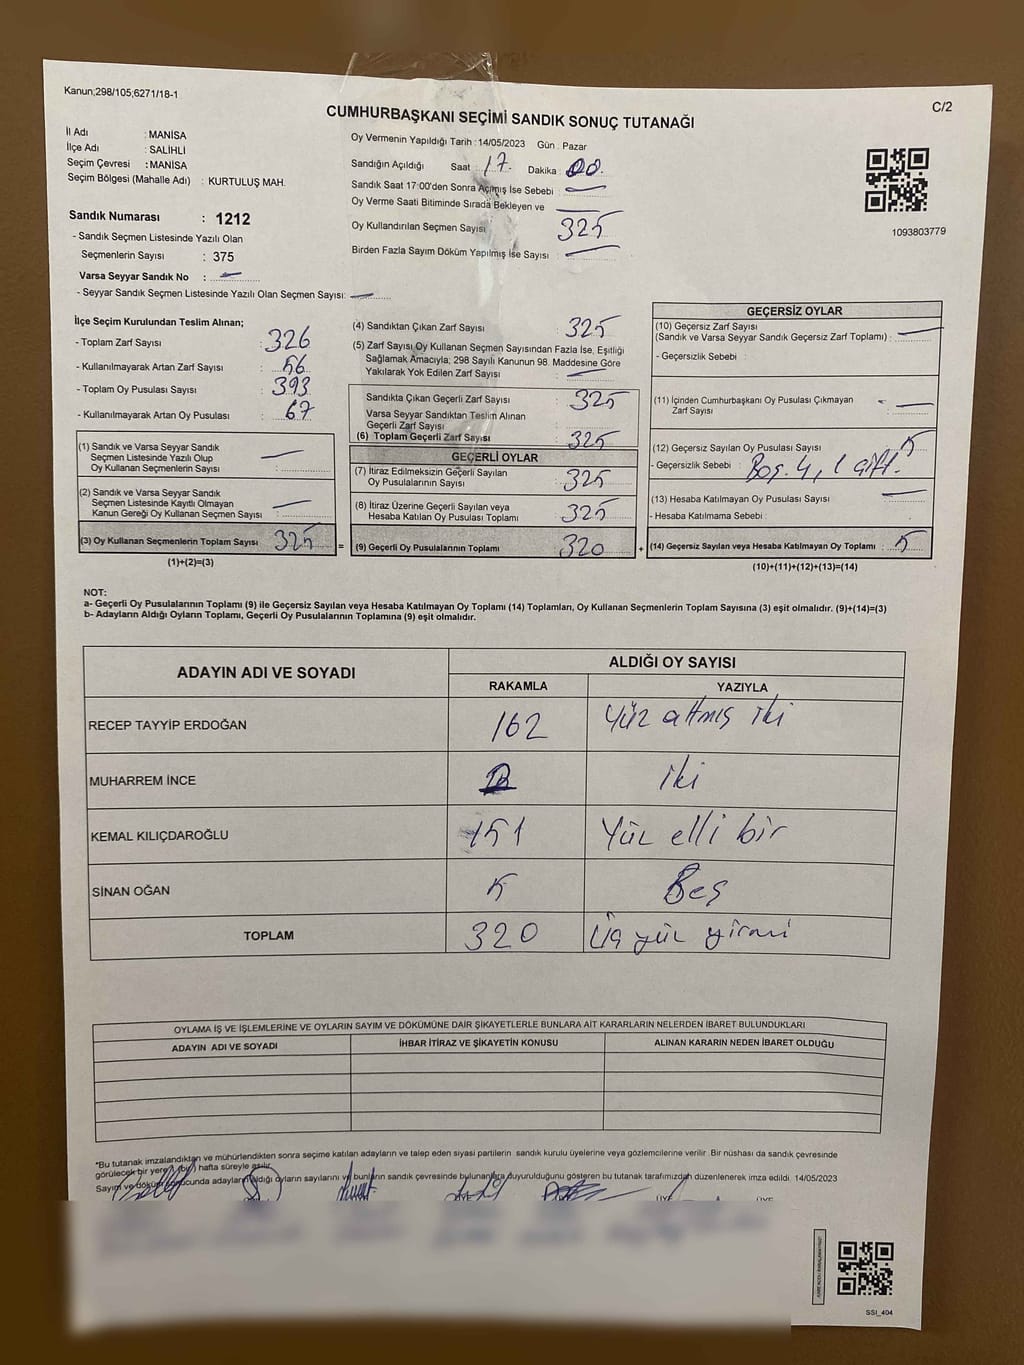 Kanun;298/105;6271/18-1
C/2
CUMHURBAŞKANI SEÇİMİ SANDIK SONUÇ TUTANAĞI
İl Adı : MANİSA
İlçe Adı : SALİHLİ
Seçim Çevresi : MANİSA
Seçim Bölgesi (Mahalle Adı) : KURTULUŞ MAH.
Sandık Numarası : 1212
- Sandık Seçmen Listesinde Yazılı Olan
Seçmenlerin Sayısı : 375
Varsa Seyyar Sandık No : —
- Seyyar Sandık Seçmen Listesinde Yazılı Olan Seçmen Sayısı: —
Oy Vermenin Yapıldığı Tarih : 14/05/2023 Gün : Pazar
Sandığın Açıldığı Saat : 17. Dakika : 00.
Sandık Saat 17:00'den Sonra Açılmış İse Sebebi : —
Oy Verme Saati Bitiminde Sırada Bekleyen ve —
Oy Kullandırılan Seçmen Sayısı 325
Birden Fazla Sayım Döküm Yapılmış İse Sayısı : —
1093803779
İlçe Seçim Kurulundan Teslim Alınan;
- Toplam Zarf Sayısı : 326
- Kullanılmayarak Artan Zarf Sayısı : 56
- Toplam Oy Pusulası Sayısı : 393
- Kullanılmayarak Artan Oy Pusulası : 67
(1) Sandık ve Varsa Seyyar Sandık
Seçmen Listesinde Yazılı Olup —
Oy Kullanan Seçmenlerin Sayısı :
(2) Sandık ve Varsa Seyyar Sandık
Seçmen Listesinde Kayıtlı Olmayan —
Kanun Gereği Oy Kullanan Seçmen Sayısı :
(3) Oy Kullanan Seçmenlerin Toplam Sayısı : 325
(1)+(2)=(3)
=
(4) Sandıktan Çıkan Zarf Sayısı : 325
(5) Zarf Sayısı Oy Kullanan Seçmen Sayısından Fazla İse, Eşitliği
Sağlamak Amacıyla; 298 Sayılı Kanunun 98. Maddesine Göre
Yakılarak Yok Edilen Zarf Sayısı : —
Sandıkta Çıkan Geçerli Zarf Sayısı : 325
Varsa Seyyar Sandıktan Teslim Alınan
Geçerli Zarf Sayısı :
(6) Toplam Geçerli Zarf Sayısı : 325
GEÇERLİ OYLAR
(7) İtiraz Edilmeksizin Geçerli Sayılan
Oy Pusulalarının Sayısı : 325
(8) İtiraz Üzerine Geçerli Sayılan veya
Hesaba Katılan Oy Pusulası Toplamı : 325
(9) Geçerli Oy Pusulalarının Toplamı : 320
+
GEÇERSİZ OYLAR
(10) Geçersiz Zarf Sayısı
(Sandık ve Varsa Seyyar Sandık Geçersiz Zarf Toplamı) : —
- Geçersizlik Sebebi :
(11) İçinden Cumhurbaşkanı Oy Pusulası Çıkmayan
Zarf Sayısı —
(12) Geçersiz Sayılan Oy Pusulası Sayısı : 5
- Geçersizlik Sebebi : Boş. 4, 1 çift.
(13) Hesaba Katılmayan Oy Pusulası Sayısı : —
- Hesaba Katılmama Sebebi :
(14) Geçersiz Sayılan veya Hesaba Katılmayan Oy Toplamı : 5
(10)+(11)+(12)+(13)=(14)
NOT:
a- Geçerli Oy Pusulalarının Toplamı (9) ile Geçersiz Sayılan veya Hesaba Katılmayan Oy Toplamı (14) Toplamları, Oy Kullanan Seçmenlerin Toplam Sayısına (3) eşit olmalıdır. (9)+(14)=(3)
b- Adayların Aldığı Oyların Toplamı, Geçerli Oy Pusulalarının Toplamına (9) eşit olmalıdır.
ADAYIN ADI VE SOYADI
ALDIĞI OY SAYISI
RAKAMLA YAZIYLA
RECEP TAYYİP ERDOĞAN 162 Yüz altmış iki
MUHARREM İNCE 2 iki
KEMAL KILIÇDAROĞLU 151 Yüz elli bir
SİNAN OĞAN 5 Beş
TOPLAM 320 Üç yüz yirmi
OYLAMA İŞ VE İŞLEMLERİNE VE OYLARIN SAYIM VE DÖKÜMÜNE DAİR ŞİKAYETLERLE BUNLARA AİT KARARLARIN NELERDEN İBARET BULUNDUKLARI
ADAYIN ADI VE SOYADI İHBAR İTİRAZ VE ŞİKAYETİN KONUSU ALINAN KARARIN NEDEN İBARET OLDUĞU
*Bu tutanak imzalandıktan ve mühürlendikten sonra seçime katılan adayların ve talep eden siyasi partilerin sandık kurulu üyelerine veya gözlemcilerine verilir. Bir nüshası da sandık çevresinde
görülecek bir yere 1 (bir) hafta süreyle asılır.
Sayım ve döküm sonucunda adayların aldığı oyların sayılarını ve bunların sandık çevresinde bulunanlara duyurulduğunu gösteren bu tutanak tarafımızdan düzenlenerek imza edildi. 14/05/2023
ÜYE ÜYE
SSI_404